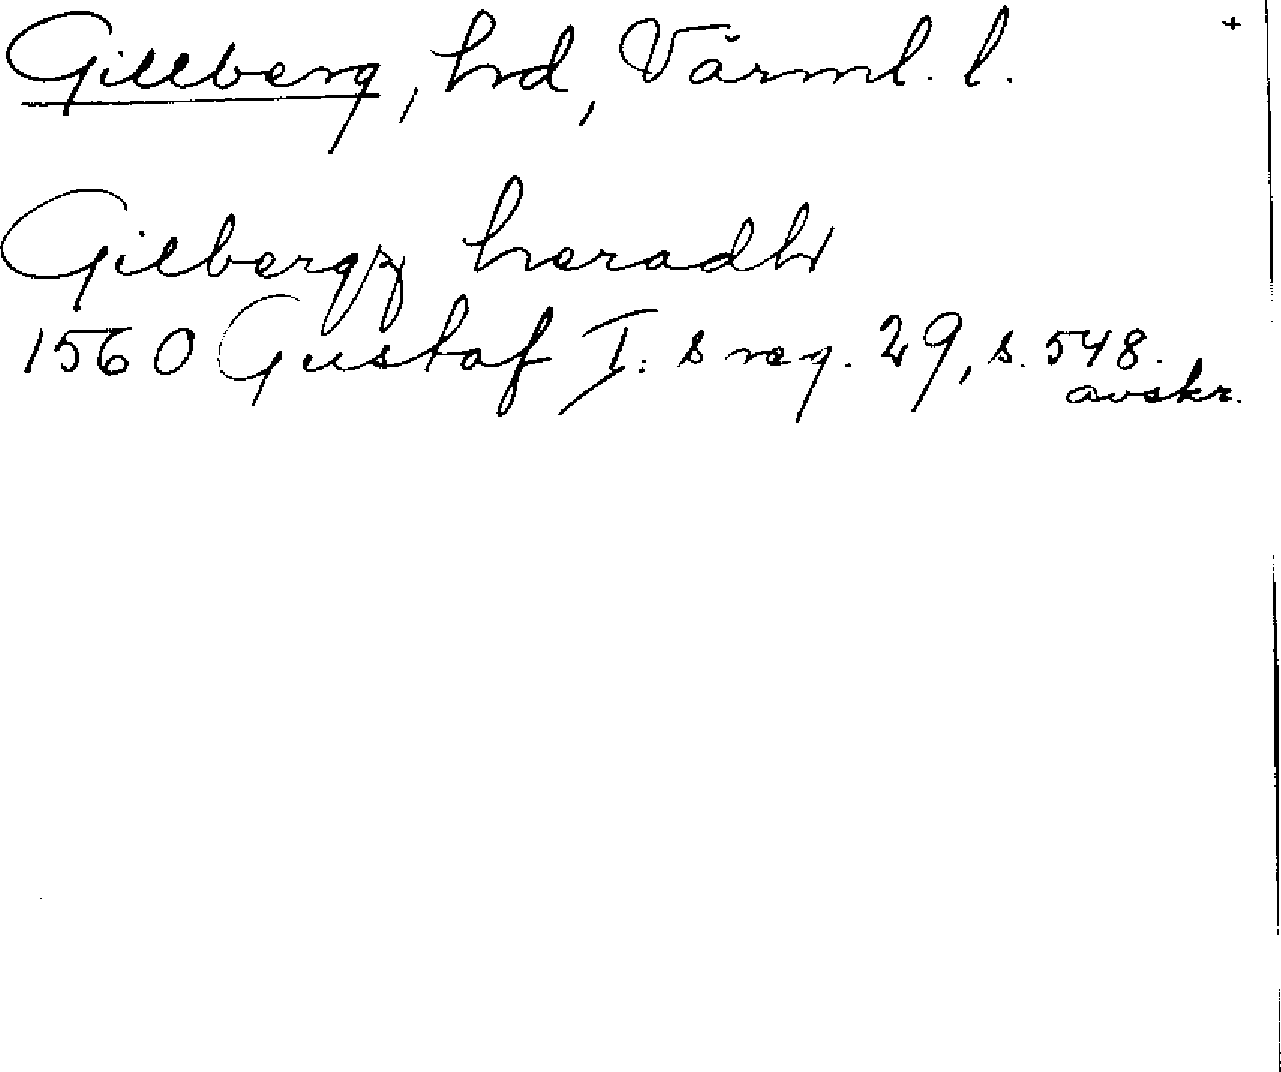 Gillberg, hd, Värml. l. +
Gilbergz heradh
1560 Gustaf I:s reg. 29, s. 548.
avskr.